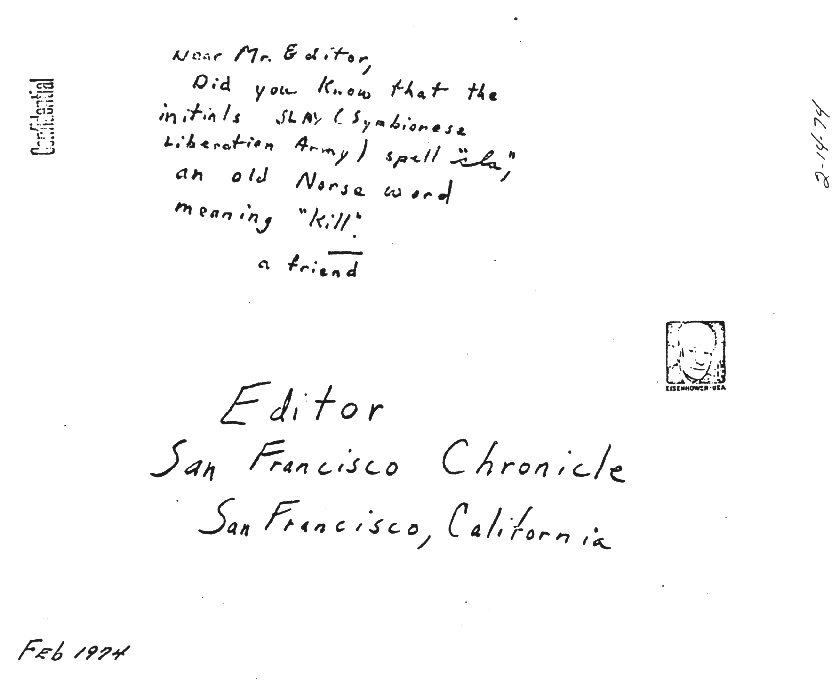 Confidential
Dear Mr. Editor,
Did you know that the
initials SLAY (Symbionese
Liberation Army) spell "sla,"
an old Norse word
meaning "kill".
a friend
2-14-74
EISENHOWER·USA
Editor
San Francisco Chronicle
San Francisco, California
Feb 1974